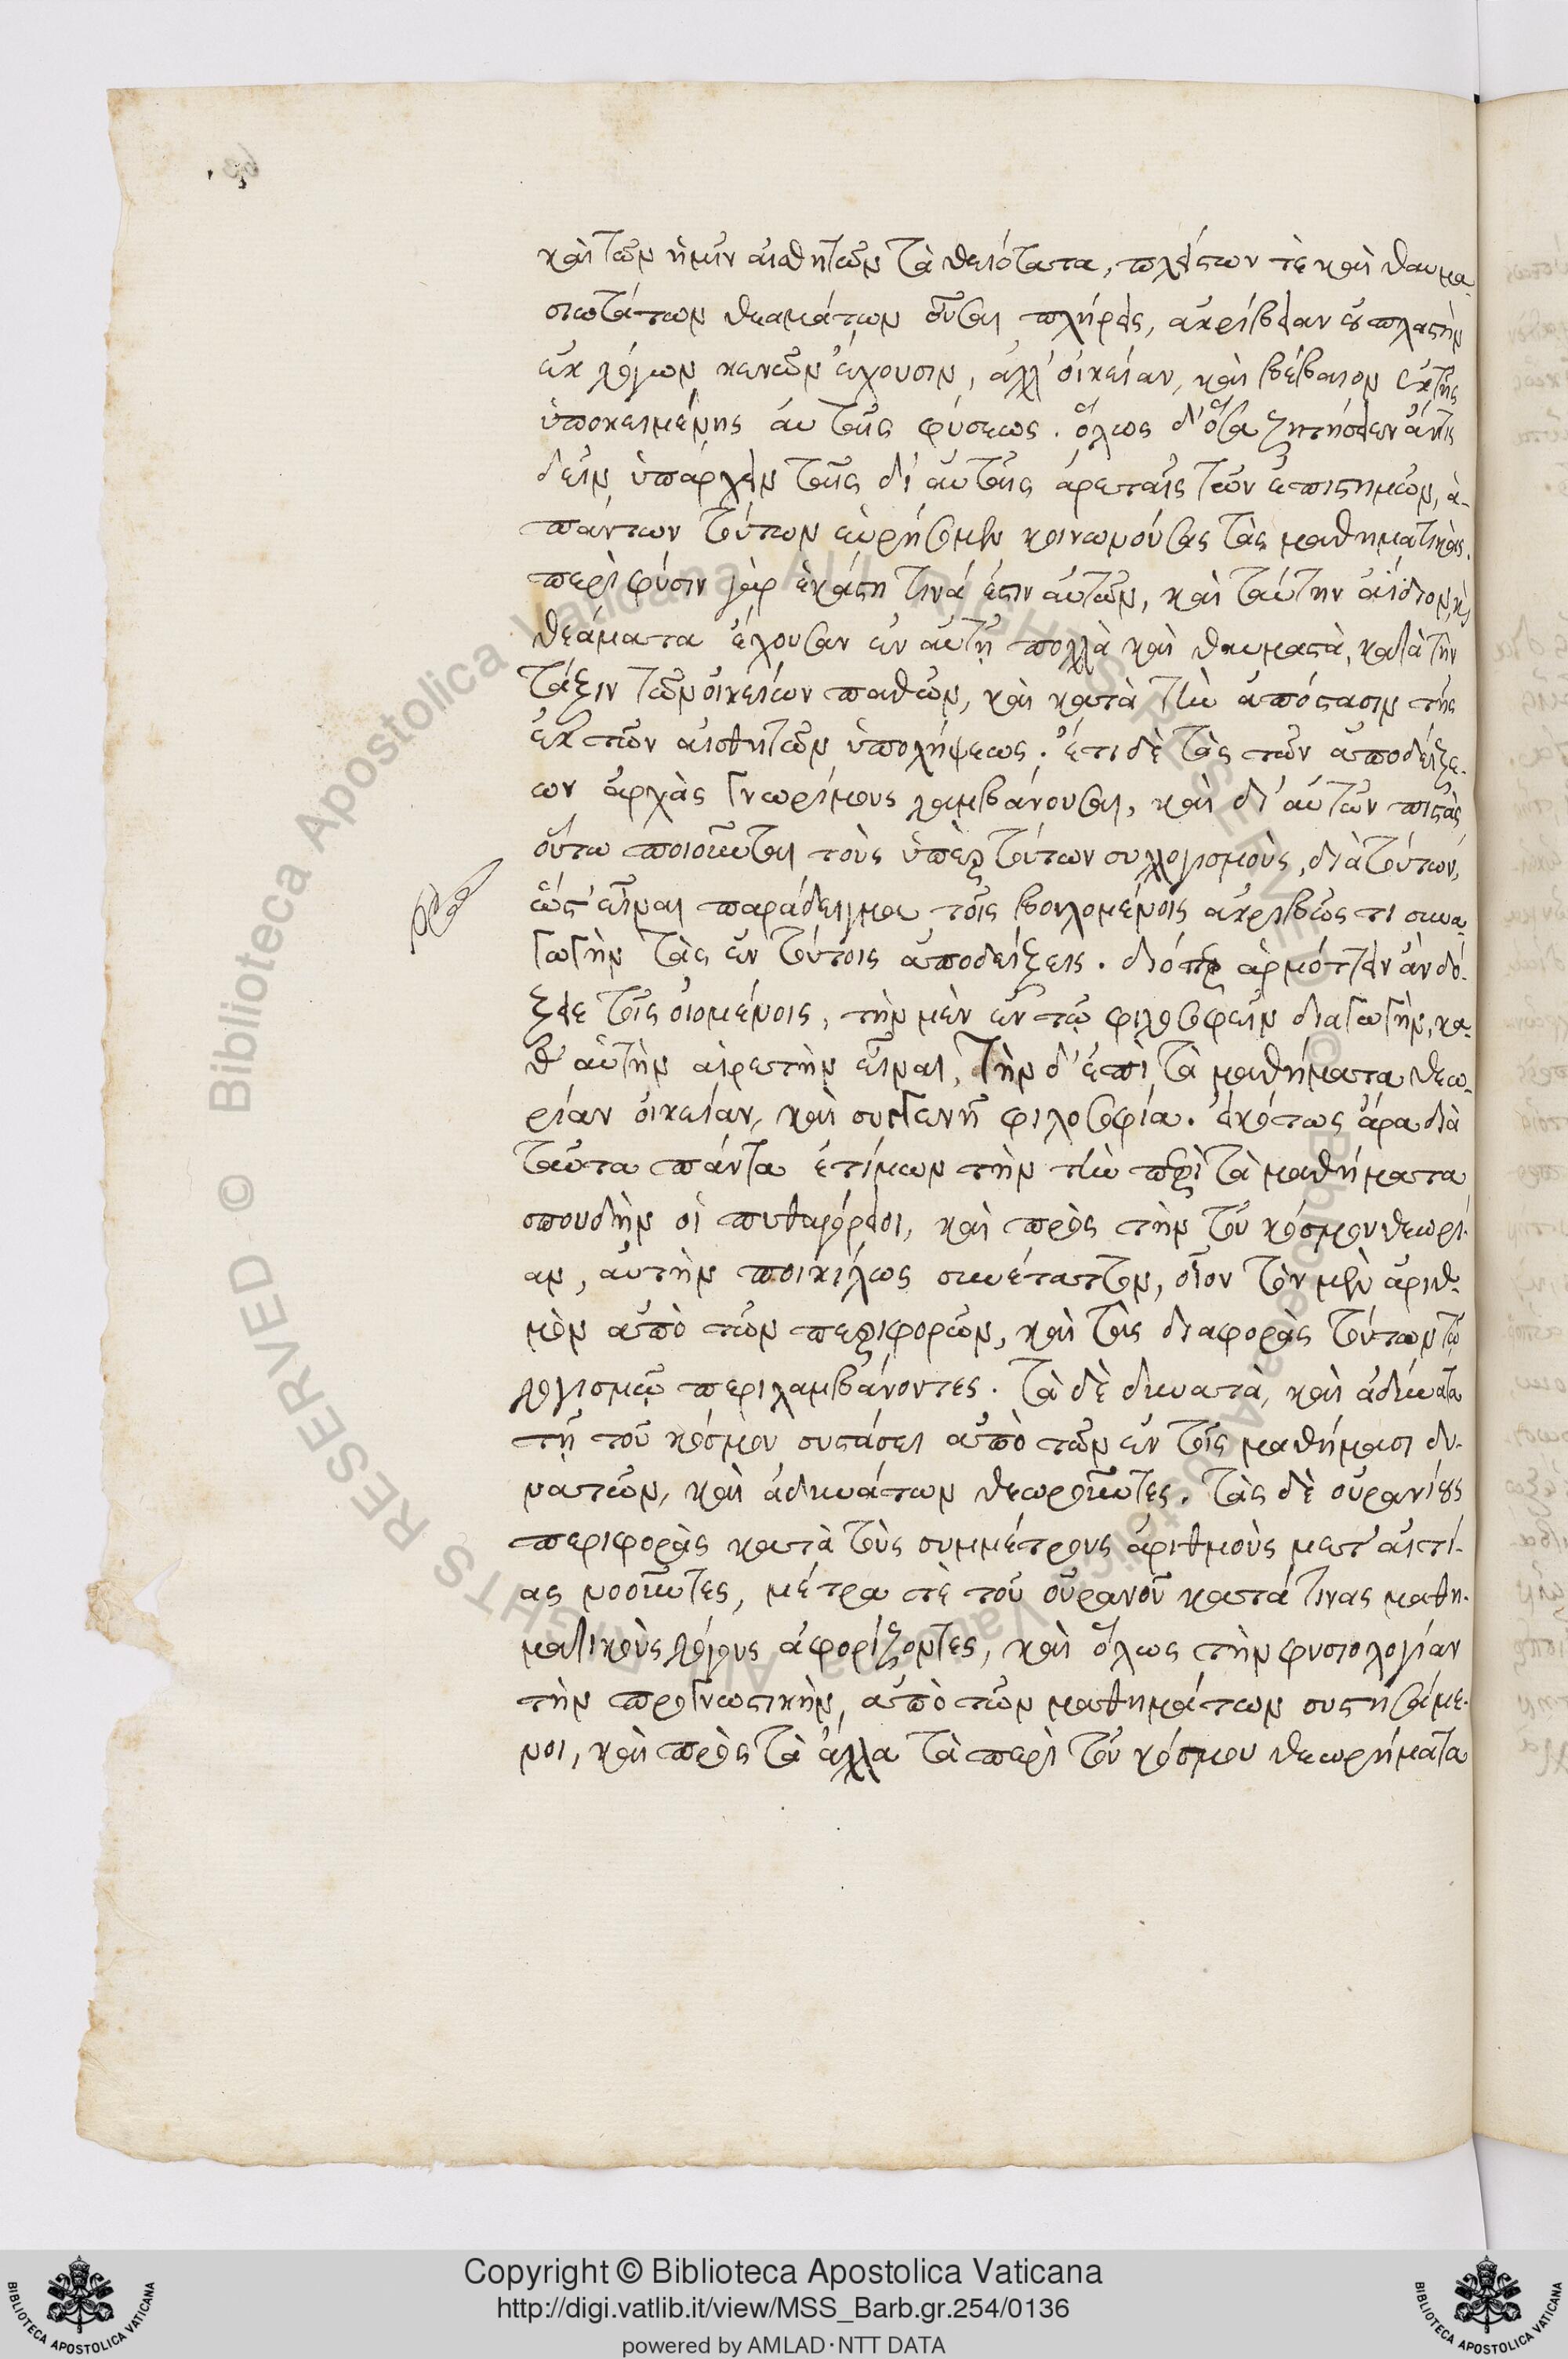 καὶ τῶν ἡμῖν αἰσθητῶν τὰ θειότατα, πλείστων τὲ καὶ θαυμα-
σιωτάτων θεαμάτων οὖσαι πλήρεις, ἀκρίβειαν οὐ πλαστὴν
ἐκ λόγων κενῶν ἔχουσιν, ἀλλ' οἰκείαν, καὶ βέβαιον ἐκ τῆς
ὑποκειμένης αὐταῖς φύσεως. ὅλως δ' ὅσα ζητήσειεν ἄν τις
δεῖν ὑπάρχειν ταῖς δι' αὑτὰς ἀρεταῖς τῶν ἐπιστημῶν, ἁ-
πάντων τούτων εὑρήσομεν κοινωνούσας τὰς μαθηματικάς.
περὶ φύσιν γὰρ ἑκάστη τινά ἐστιν αὐτῶν, καὶ ταύτην ἀΐδιον, καὶ
θεάματα ἔχουσαν ἐν αὐτῇ πολλὰ καὶ θαυμαστὰ, κατὰ τὴν
τάξιν τῶν οἰκείων παθῶν, καὶ κατὰ τὴν ἀπόστασιν τῆς
ἐκ τῶν αἰσθητῶν ὑπολήψεως. ἔτι δὲ τὰς τῶν ἀποδείξε-
ων ἀρχὰς γνωρίμους λαμβάνουσαι, καὶ δι' αὑτῶν πιστὰς,
οὕτω ποιοῦνται τοὺς ὑπὲρ τούτων συλλογισμοὺς, διὰ τούτων,
ὥστ' εἶναι παράδειγμα τοῖς βουλομένοις ἀκριβῶς τι συνα-
γωγὴν τὰς ἐν τούτοις ἀποδείξεις. διόπερ ἁρμόττειν ἂν δό-
ξειε τοῖς οἰομένοις, τὴν μὲν ἐν τῷ φιλοσοφεῖν διαγωγὴν, κα-
θ' αὑτὴν αἱρετὴν εἶναι, τὴν δ' ἐπὶ τὰ μαθήματα θεω-
ρίαν οἰκείαν, καὶ συγγενῆ φιλοσοφία. εἰκότως ἄρα διὰ
ταῦτα πάντα ἐτίμων τὴν τὴν περὶ τὰ μαθήματα
σπουδὴν οἱ πυθαγόρειοι, καὶ πρὸς τὴν τοῦ κόσμου θεωρί-
αν, αὐτὴν ποικίλως συνέταττον, οἷον τὸν μὲν ἀριθ-
μὸν ἀπὸ τῶν περιφορῶν, καὶ τὰς διαφορὰς τούτων τῷ
λογισμῷ περιλαμβάνοντες. τὰ δὲ δυνατὰ, καὶ ἀδύνατα
τῇ τοῦ κόσμου συστάσει ἀπὸ τῶν ἐν τοῖς μαθήμασι δυ-
νατῶν, καὶ ἀδυνάτων θεωροῦντες. τὰς δὲ οὐρανίους
περιφορὰς κατὰ τοὺς συμμέτρους ἀριθμοὺς μετ' αἰτί-
ας νοοῦντες, μέτρα τὲ τοῦ οὐρανοῦ κατά τινας μαθη-
ματικοὺς λόγους ἀφορίζοντες, καὶ ὅλως τὴν φυσιολογίαν
τὴν προγνωστικὴν, ἀπὸ τῶν μαθημάτων συστησάμε-
νοι, καὶ πρὸς τὰ ἄλλα τὰ περὶ τοῦ κόσμου θεωρήματα
© Biblioteca Apostolica Vaticana ALL RIGHTS RESERVED
Copyright © Biblioteca Apostolica Vaticana
http://digi.vatlib.it/view/MSS_Barb.gr.254/0136
powered by AMLAD·NTT DATA
BIBLIOTECA APOSTOLICA VATICANA
BIBLIOTECA APOSTOLICA VATICANA